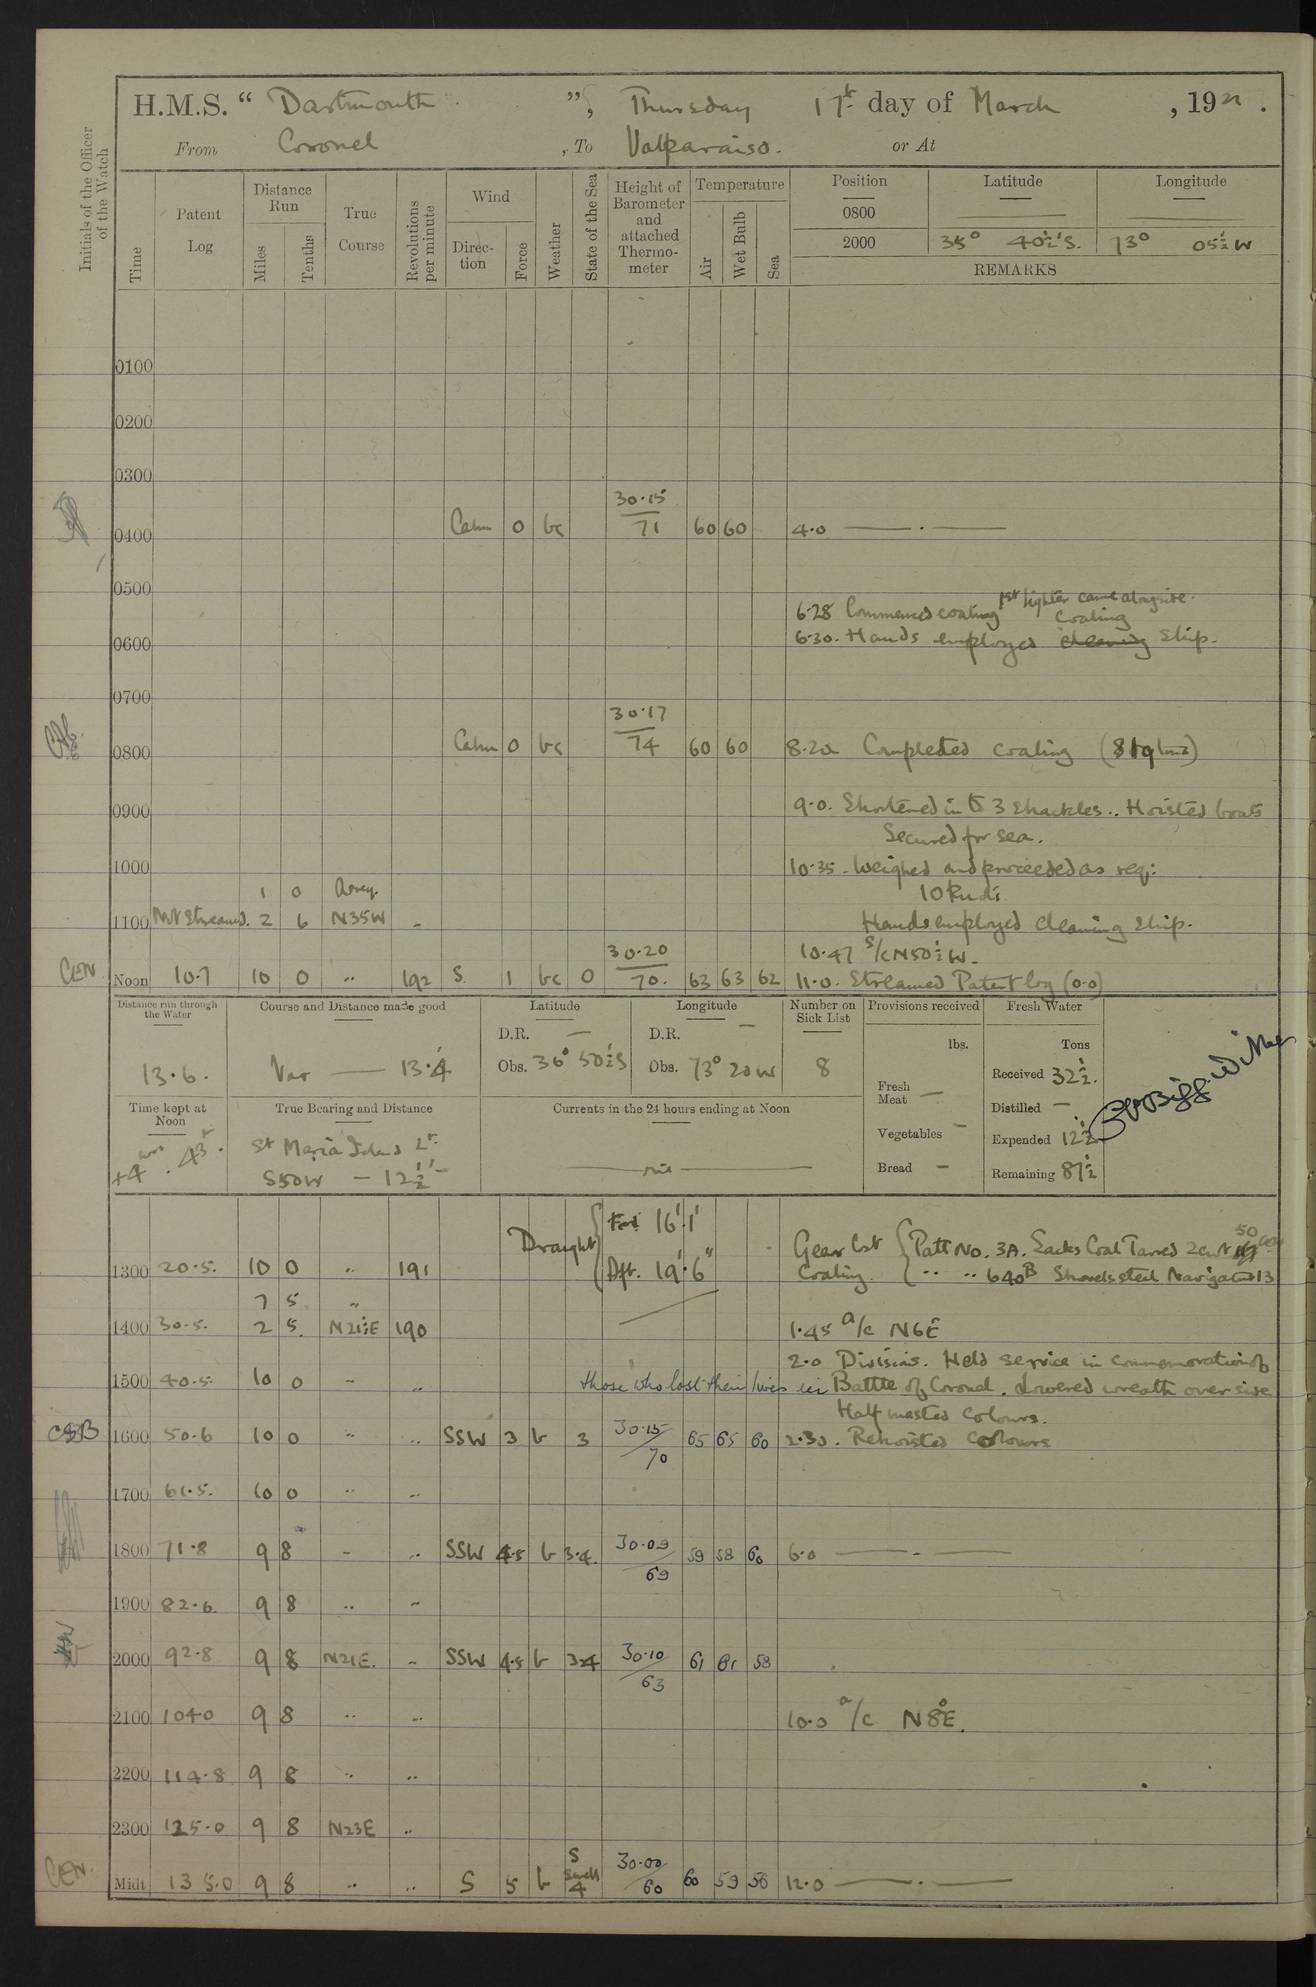 H.M.S. “ Dartmouth ”, Thursday 17th day of March , 1921 .
From Coronel , To Valparaiso. or At
Initials of the Officer of the Watch
Time
Patent Log
Distance Run
Miles Tenths
True Course
Revolutions per minute
Wind
Direction Force
Weather
State of the Sea
Height of Barometer and attached Thermometer
Temperature
Air Wet Bulb Sea
Position Latitude Longitude
0800
2000 35° 40½'S. 73° 05½ W
REMARKS
0100
0200
0300
30·15
0400 Calm 0 bc 71 60 60 4·0
0500
1st lighter came alongside.
6·28 Commenced coaling
coaling
0600 6·30. Hands employed cleaning ship.
0700
30·17
0800 Calm 0 bc 74 60 60 8·20 Completed coaling
0900 9·0. Shortened in to 3 shackles.. Hoisted boats
Secured for sea.
1000 10·35. Weighed and proceeded as req:
1 0
1100 Pat Streamed. 2 6 N35W Hands employed cleaning ship.
30·20
10·47 s/c N50½W.
CEN Noon 10·7 10 0 " 192 S. 1 bc 0 70. 63 63 62 11·0. Streamed Patent log (0·0)
Distance run through the Water
Course and Distance made good
Latitude
Longitude
Number on Sick List
Provisions received
Fresh Water
D.R. — D.R. —
lbs. Tons
13·6. Var — 13·4 Obs. 36° 50½'S Obs. 73° 20 W 8
Received 32½.
Fresh Meat —
Distilled —
Time kept at Noon
True Bearing and Distance
Currents in the 24 hours ending at Noon
Vegetables —
Expended 12½
+4 hrs. 43
St Maria Island Lt.
S50W — 12½'
nil
Bread —
Remaining 87½
Draught { Ford 16' 1"
Aft. 19' 6"
Gear lost Coaling { Patt No. 3A. Sacks Coal Tarred 2cwt 50
" " 640B Shovels steel Navigator 13
1300 20·5. 10 0 " 191
7 5 "
1400 30·5. 2 5. N21½E 190 1·45 a/c N6E
2·0 Divisions. Held service in commemoration of
1500 40·5 10 0 " " those who lost their lives in Battle of Coronel. Lowered wreath over side
Half masted Colours.
CSB 1600 50·6 10 0 " " SSW 3 b 3 30·15/70 65 65 60 2·30. Rehoisted Colours
1700 61·5. 10 0 " "
1800 71·8 9 8 " " SSW 4·5 b 3·4. 30·09/69 59 58 60 6·0
1900 82·6. 9 8 " "
2000 92·8 9 8 N21E. " SSW 4·5 b 3·4 30·10/63 61 61 58
2100 104·0 9 8 " " 10·0 a/c N8°E.
2200 114·8 9 8 " "
2300 125·0 9 8 N23E "
CEN. Midt. 135·0 9 8 " " S 5 b S Swell 4 30·00/60 60 59 56 12·0